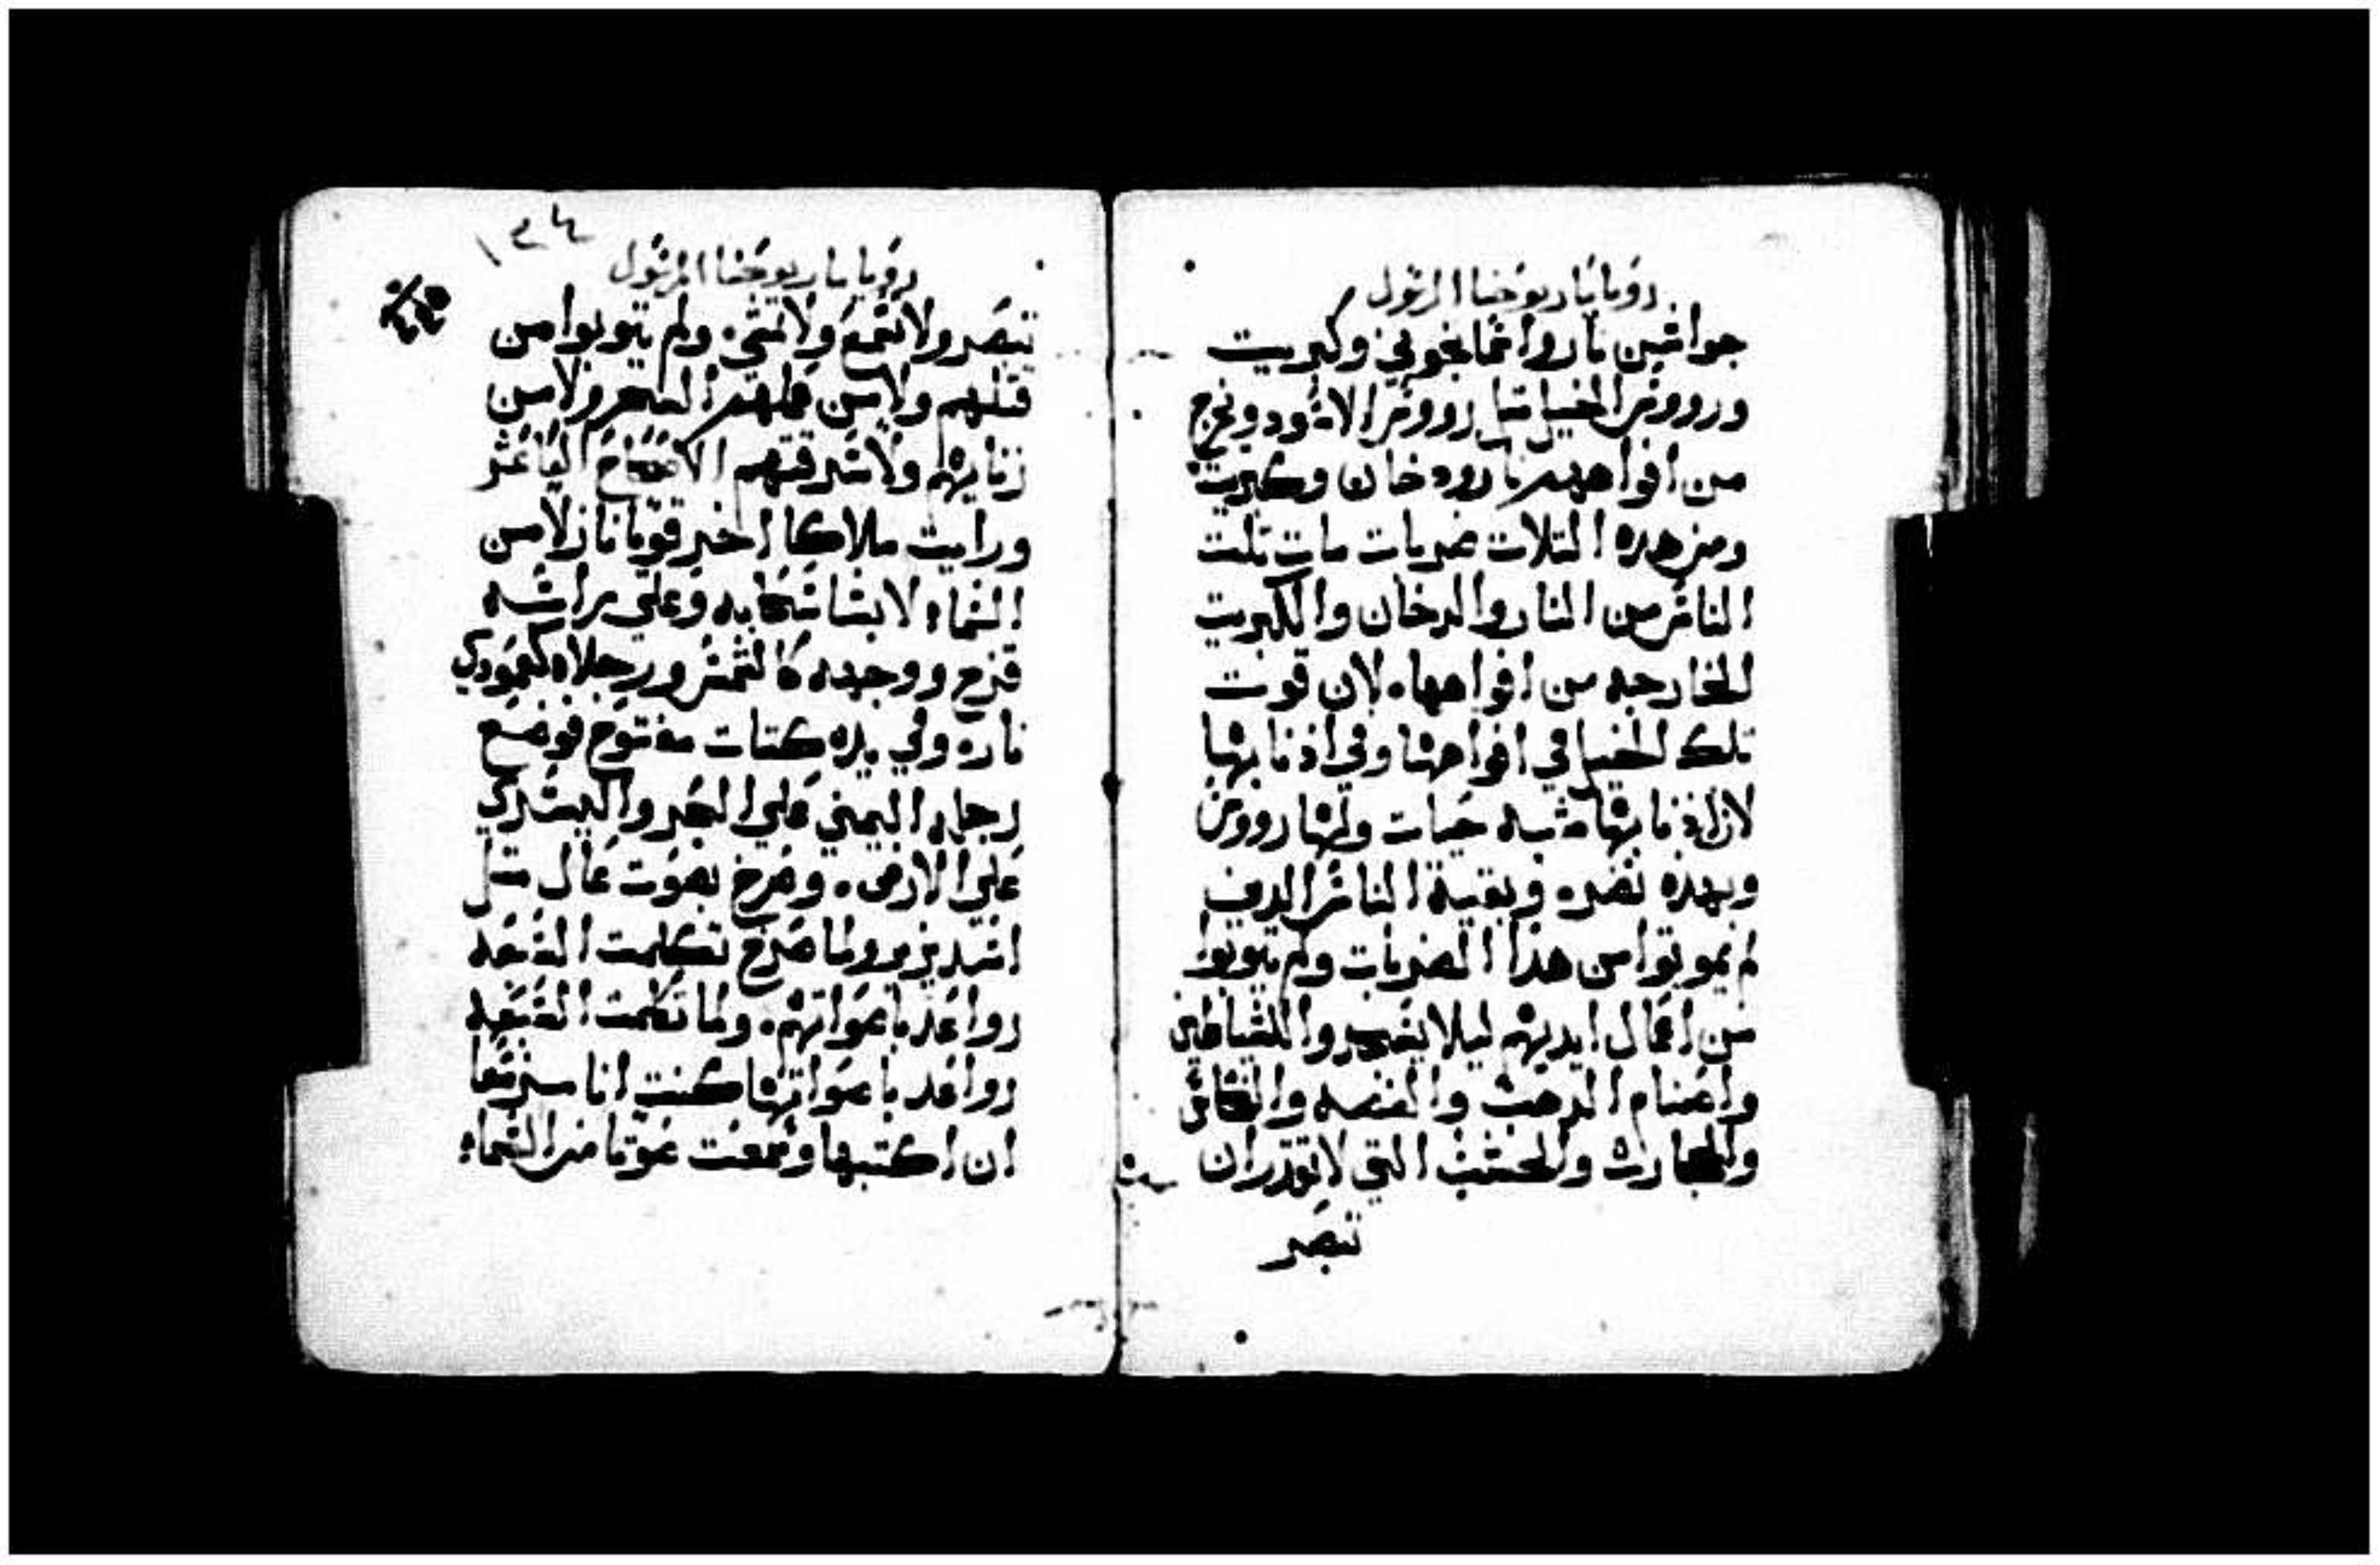 رويا ماريوحنا الرسول
جواشين نار واسمانجوني وكبريت
ورووس الخيل مثل رووس الاسود ويخرج
من افواههم نار ودخان وكبريت
ومن هده التلات ضربات مات تلت
الناس من النار والدخان والكبريت
الخارجه من افواهها. لان قوت
تلك الخيل في افواهها وفي اذنابها
لان اذنابها شبه حيات ولها رووس
وبهذه تضر. وبقية الناس الدين
لم يموتوا من هذا الضربات ولم يتوبوا
من اعمال ايديهم ليلا يسجدوا للشياطين
واصنام الدهب والفضه والنحاس
والحجاره والخشب التي لا تقدر ان
تبصر
١٣٤
رويا ماريوحنا الرسول
تبصر ولا تسمع ولا تمشي. ولم يتوبوا من
قتلهم ولا من السحر ولا من
زنايهم ولا سرقتهم الاصحاح العاشر
ورايت ملاكا اخر قويا نازلا من
السماء لابسا سحابه وعلي راسه
قزح ووجهه كالشمس ورجلاه كعمودي
نار. وفي يده كتاب مفتوح فوضع
رجله اليمني علي البحر واليسري
علي الارض. وصرخ بصوت عال مثل
اسد يزير ولما صرخ تكلمت السبعه
رواعد باصواتهم. ولما تكلمت السبعه
رواعد باصواتها كنت انا مزمعا
ان اكتبها وسمعت صوتا من السماء